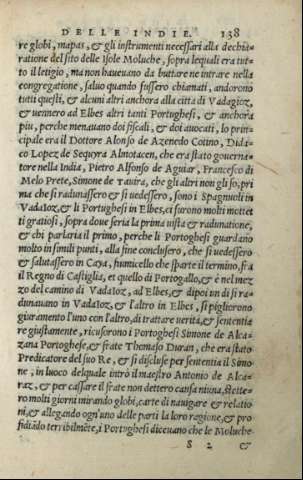 DELLE INDIE. 138
re globi, mapas, & gli instrumenti necessari alla dechia-
ratione del sito delle Isole Moluche, sopra lequali era tut-
to il letigio, ma non haueuano da buttare ne intrare nella
congregatione, saluo quando fussero chiamati, andorono
tutti questi, & alcuni altri anchora alla citta di Vadagioz,
& uennero ad Elbes altri tanti Portughesi, & anchora
piu, perche menauano doi fiscali, & doi auocati, lo prin-
cipale era il Dottore Alonso de Azenedo Cotino, Dida-
co Lopez de Sequyra Almotacen, che era stato gouerna-
tore nella India, Pietro Alfonso de Aguiar, Francesco di
Melo Prete, Simone de Tauira, che gli altri non gli so, pri
ma che si radunassero & si uedessero, sono i Spagnuoli in
Vadaioz, & li Portughesi in Elbes, ci furono molti motet
ti gratiosi, sopra doue seria la prima uista & radunatione,
& chi parlaria il primo, perche li Portoghesi guardano
molto in simili punti, alla fine conclusero, che si uedessero
& salutassero in Caya, fiumicello che sparte il termino, fra
il Regno di Castiglia, et quello di Portogallo, & è nel mez
zo del camino di Vadaioz, ad Elbes, & dipoi un dì si ra-
dunauano in Vadaioz, & l'altro in Elbes, si pigliorono
giuramento l'uno con l'altro, di trattare verità, & sententia
re giustamente, ricusorono i Portoghesi Simone de Alca-
zana Portoghese, & frate Thomaso Duran, che era stato
Predicatore del suo Re, & si discluse per sententia il Simo-
ne, in luoco delquale intrò il maestro Antonio de Alca-
raz, & per cassare il frate non dettero causa niuna, stette-
ro molti giorni mirando globi, carte di nauigare & relatio
ni, & allegando ogn'uno delle parti la loro ragione, & pro
fidiãdo terribilmẽte, i Portughesi diceuano che le Moluche
S 2 &